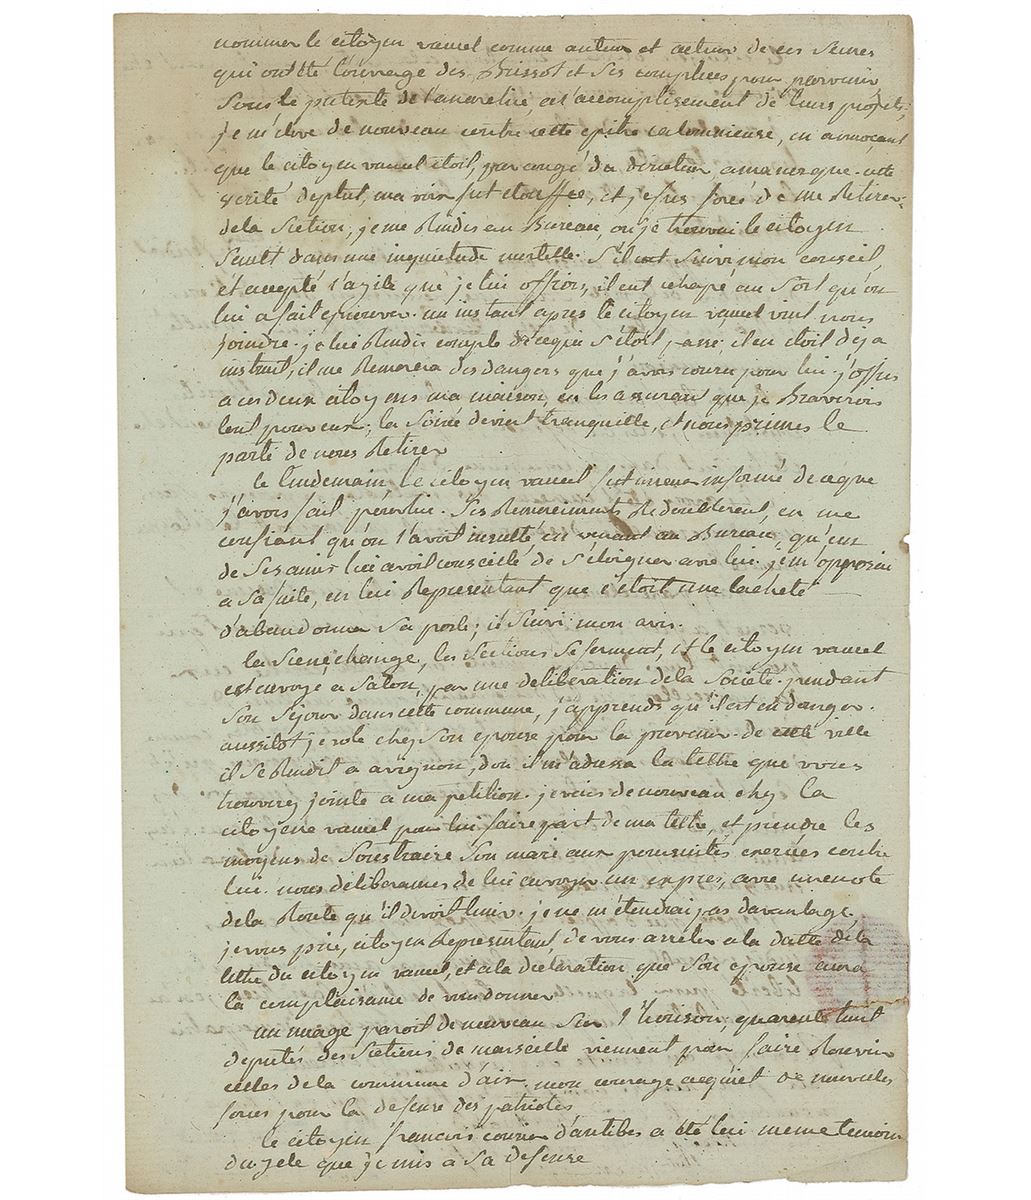 nommer le citoyen vauuel comme auteur et acteur de ces scenes
qui ont été l'ouvrage des Brissot et ses complices pour parvenir
sous le pretexte de l'anarchie, a l'accomplisement de leurs projets,
je m'eleve de nouveau contre cette epitre calomnieuse, en annoncant
que le citoyen vauuel étoit, par congé du directeur, a manosque. cette
verité deplut, ma voix fut étouffée, et je fus forcé de me Retirer
dela Section, je me Rendis au Bureau, ou je trouvai le citoyen
dans une inquietude mortelle. S'il eut suivi mon conseil,
et accepté l'azile que je lui offrois, il eut échapé au Sort qu'on
lui a fait eprouver. un instant apres le citoyen vauuel vint nous
joindre. je lui Rendis compte de cequi s'étoit passé. il en étoit deja
instruit, il me Remercia des dangers que j'avois couru pour lui. j'offris
a ces deux citoyens ma maison, en les assurant que je Braverois
tout pour eux; la Soirée devint tranquille, et nous primes le
parti de nous Retirer
le lendemain le citoyen vauuel fut informé de ceque
j'avois fait pour lui. Ses Remerciments Redoublerent, en me
confiant qu'on l'avoit insulté en venant au Bureau, qu'un
de Ses amis lui avoit conseillé de s'éloigner avec lui. je m'opposai
a Sa fuite, en lui Representant que c'étoit une lacheté
d'abandonner Sa poste; il Suivi mon avis.
la Scene change, les Sections Se ferment, et le citoyen vauuel
est envoyé a Salon, par une deliberation de la Société. pendant
Son Sejour dans cette commune, j'apprends qu'il est en danger.
aussitot je vole chez Son epouse pour la prevenir. de cette ville
il Se Rendit a avignon, d'ou il m'adressa la lettre que vous
trouverez jointe a ma petition. je vais de nouveau chez la
citoyene vauuel pour lui faire part de ma lettre, et prendre les
moyens de Soustraire Son mari aux poursuites exercées contre
lui. nous déliberames de lui envoyer un exprés, avec une note
de la Route qu'il devoit tenir. je ne m'étendrai pas davantage,
je vous prie, citoyen Representant, de vous arreter a la datte de la
lettre du citoyen vauuel, et a la declaration que Son epouse aura
la complaisance de vous donner
un nuage paroit de nouveau sur l'horison, quarente huit
deputés des Sections de marseille viennent pour faire Rouvrir
celles de la commune d'aix. mon courage acquiet de nouvelles
forces pour la defense des patriotes
le citoyen francois courier d'antibes a été lui meme temoin
du zele que j'e mis a Sa defense